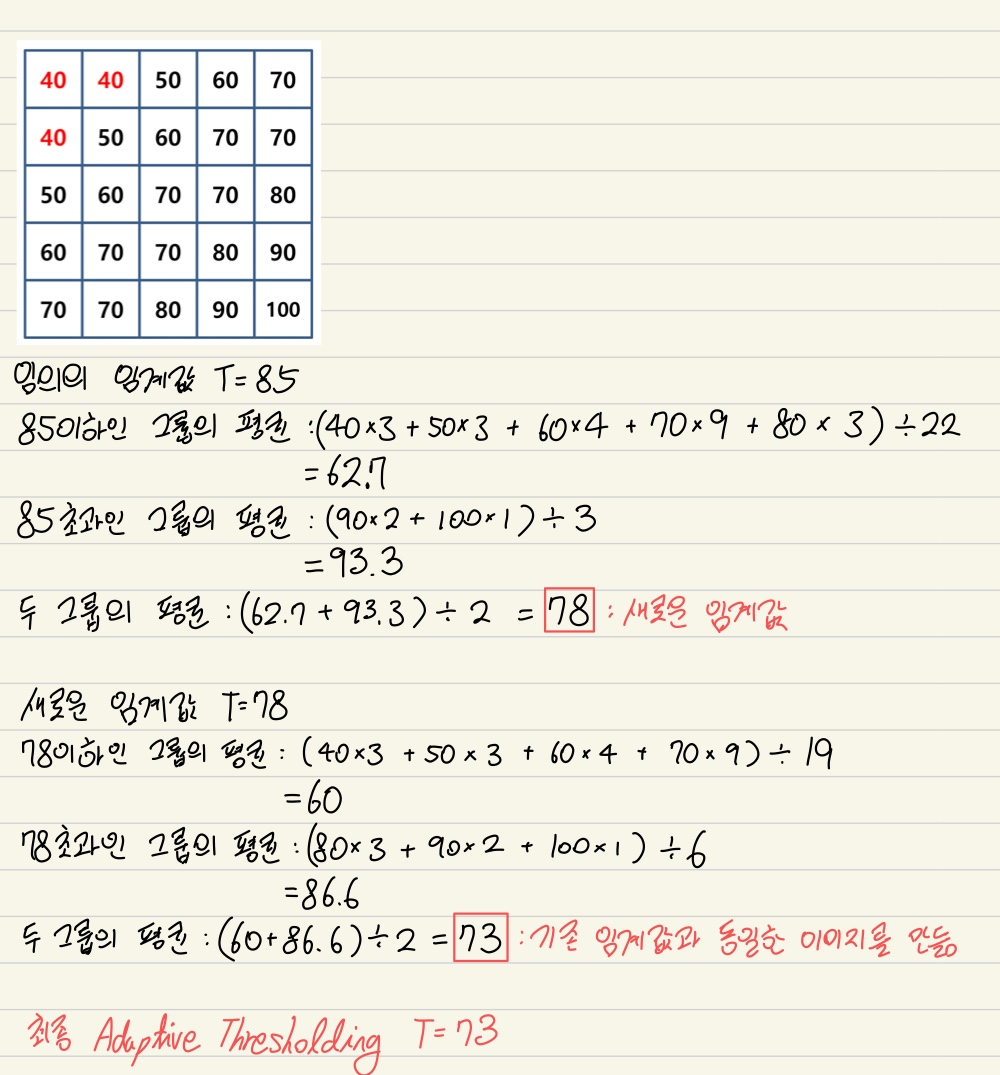 40 40 50 60 70
40 50 60 70 70
50 60 70 70 80
60 70 70 80 90
70 70 80 90 100
임의의 임계값 T=85
85이하인 그룹의 평균 :(40×3+50×3 + 60×4 + 70×9 + 80 × 3)÷22
=62.7
85초과인 그룹의 평균 : (90×2 + 100×1)÷3
=93.3
두 그룹의 평균 :(62.7+93.3)÷2 = 78 : 새로운 임계값
새로운 임계값 T=78
78이하인 그룹의 평균 : (40×3 +50×3 + 60×4 + 70×9)÷19
=60
78초과인 그룹의 평균 :(80×3 + 90×2 + 100×1)÷6
=86.6
두 그룹의 평균 : (60+86.6)÷2 = 73 :기존 임계값과 동일한 이미지를 만듦
최종 Adaptive Thresholding T=73